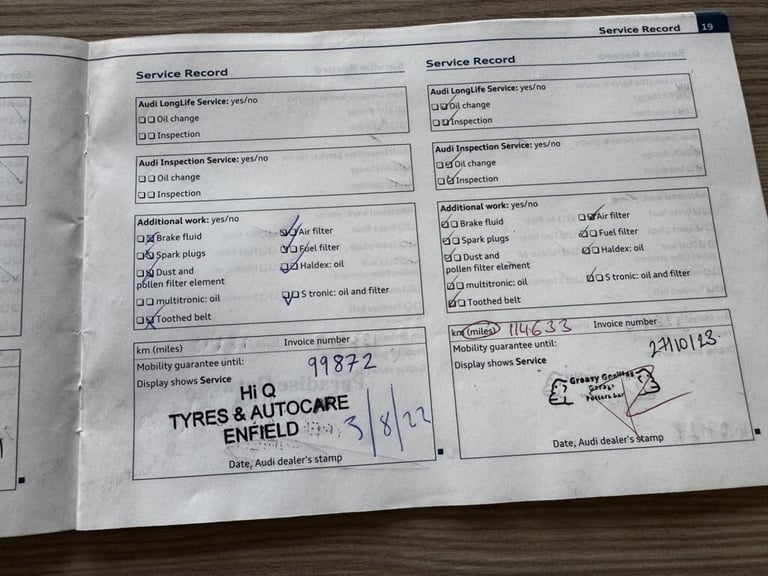 Service Record 19
Service Record
Audi LongLife Service: yes/no
Oil change
Inspection
Audi Inspection Service: yes/no
Oil change
Inspection
Additional work: yes/no
Brake fluid
Air filter
Spark plugs
Fuel filter
Dust and
pollen filter element
Haldex: oil
multitronic: oil
S tronic: oil and filter
Toothed belt
km (miles)
Invoice number
Mobility guarantee until:
99872
Display shows Service
Hi Q
TYRES & AUTOCARE
ENFIELD
3/8/22
Date, Audi dealer's stamp
Service Record
Audi LongLife Service: yes/no
Oil change
Inspection
Audi Inspection Service: yes/no
Oil change
Inspection
Additional work: yes/no
Brake fluid
Air filter
Spark plugs
Fuel filter
Dust and
pollen filter element
Haldex: oil
multitronic: oil
S tronic: oil and filter
Toothed belt
km (miles) 114633
Invoice number
Mobility guarantee until:
27/10/23
Display shows Service
Greasy Gorillas
Garage
Potters bar
Date, Audi dealer's stamp